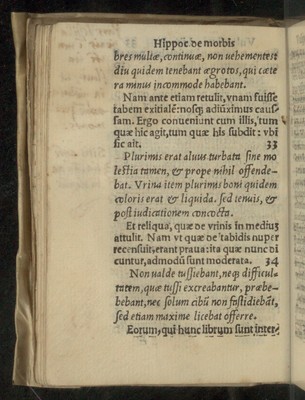 Hippoc. de morbis
bres multæ, continuæ, non uehementes:
diu quidem tenebant ægrotos, qui cæte
ra minus incommode habebant.
Nam ante etiam retulit, vnam fuisse
tabem exitialē: nosq; adiūximus caus-
sam. Ergo conueniunt cum illis, tum
quæ hic agit, tum quæ his subdit: vbi
sic ait. 33
Plurimis erat aluus turbata sine mo
lestia tamen, & prope nihil offende-
bat. Vrina item plurimis boni quidem
coloris erat & liquida. sed tenuis, &
post iudicationem concocta.
Et reliqua, quæ de vrinis in mediū
attulit. Nam vt quæ de tabidis nuper
recensuit, erant praua: ita quæ nunc di
cuntur, admodū sunt moderata. 34
Non ualde tussiebant, neq; difficul-
tatem, quæ tussi excreabantur, præbe-
bant, nec solum cibū non fastidiebāt,
sed etiam maxime licebat offerre.
Eorum, qui hunc librum sunt inter-